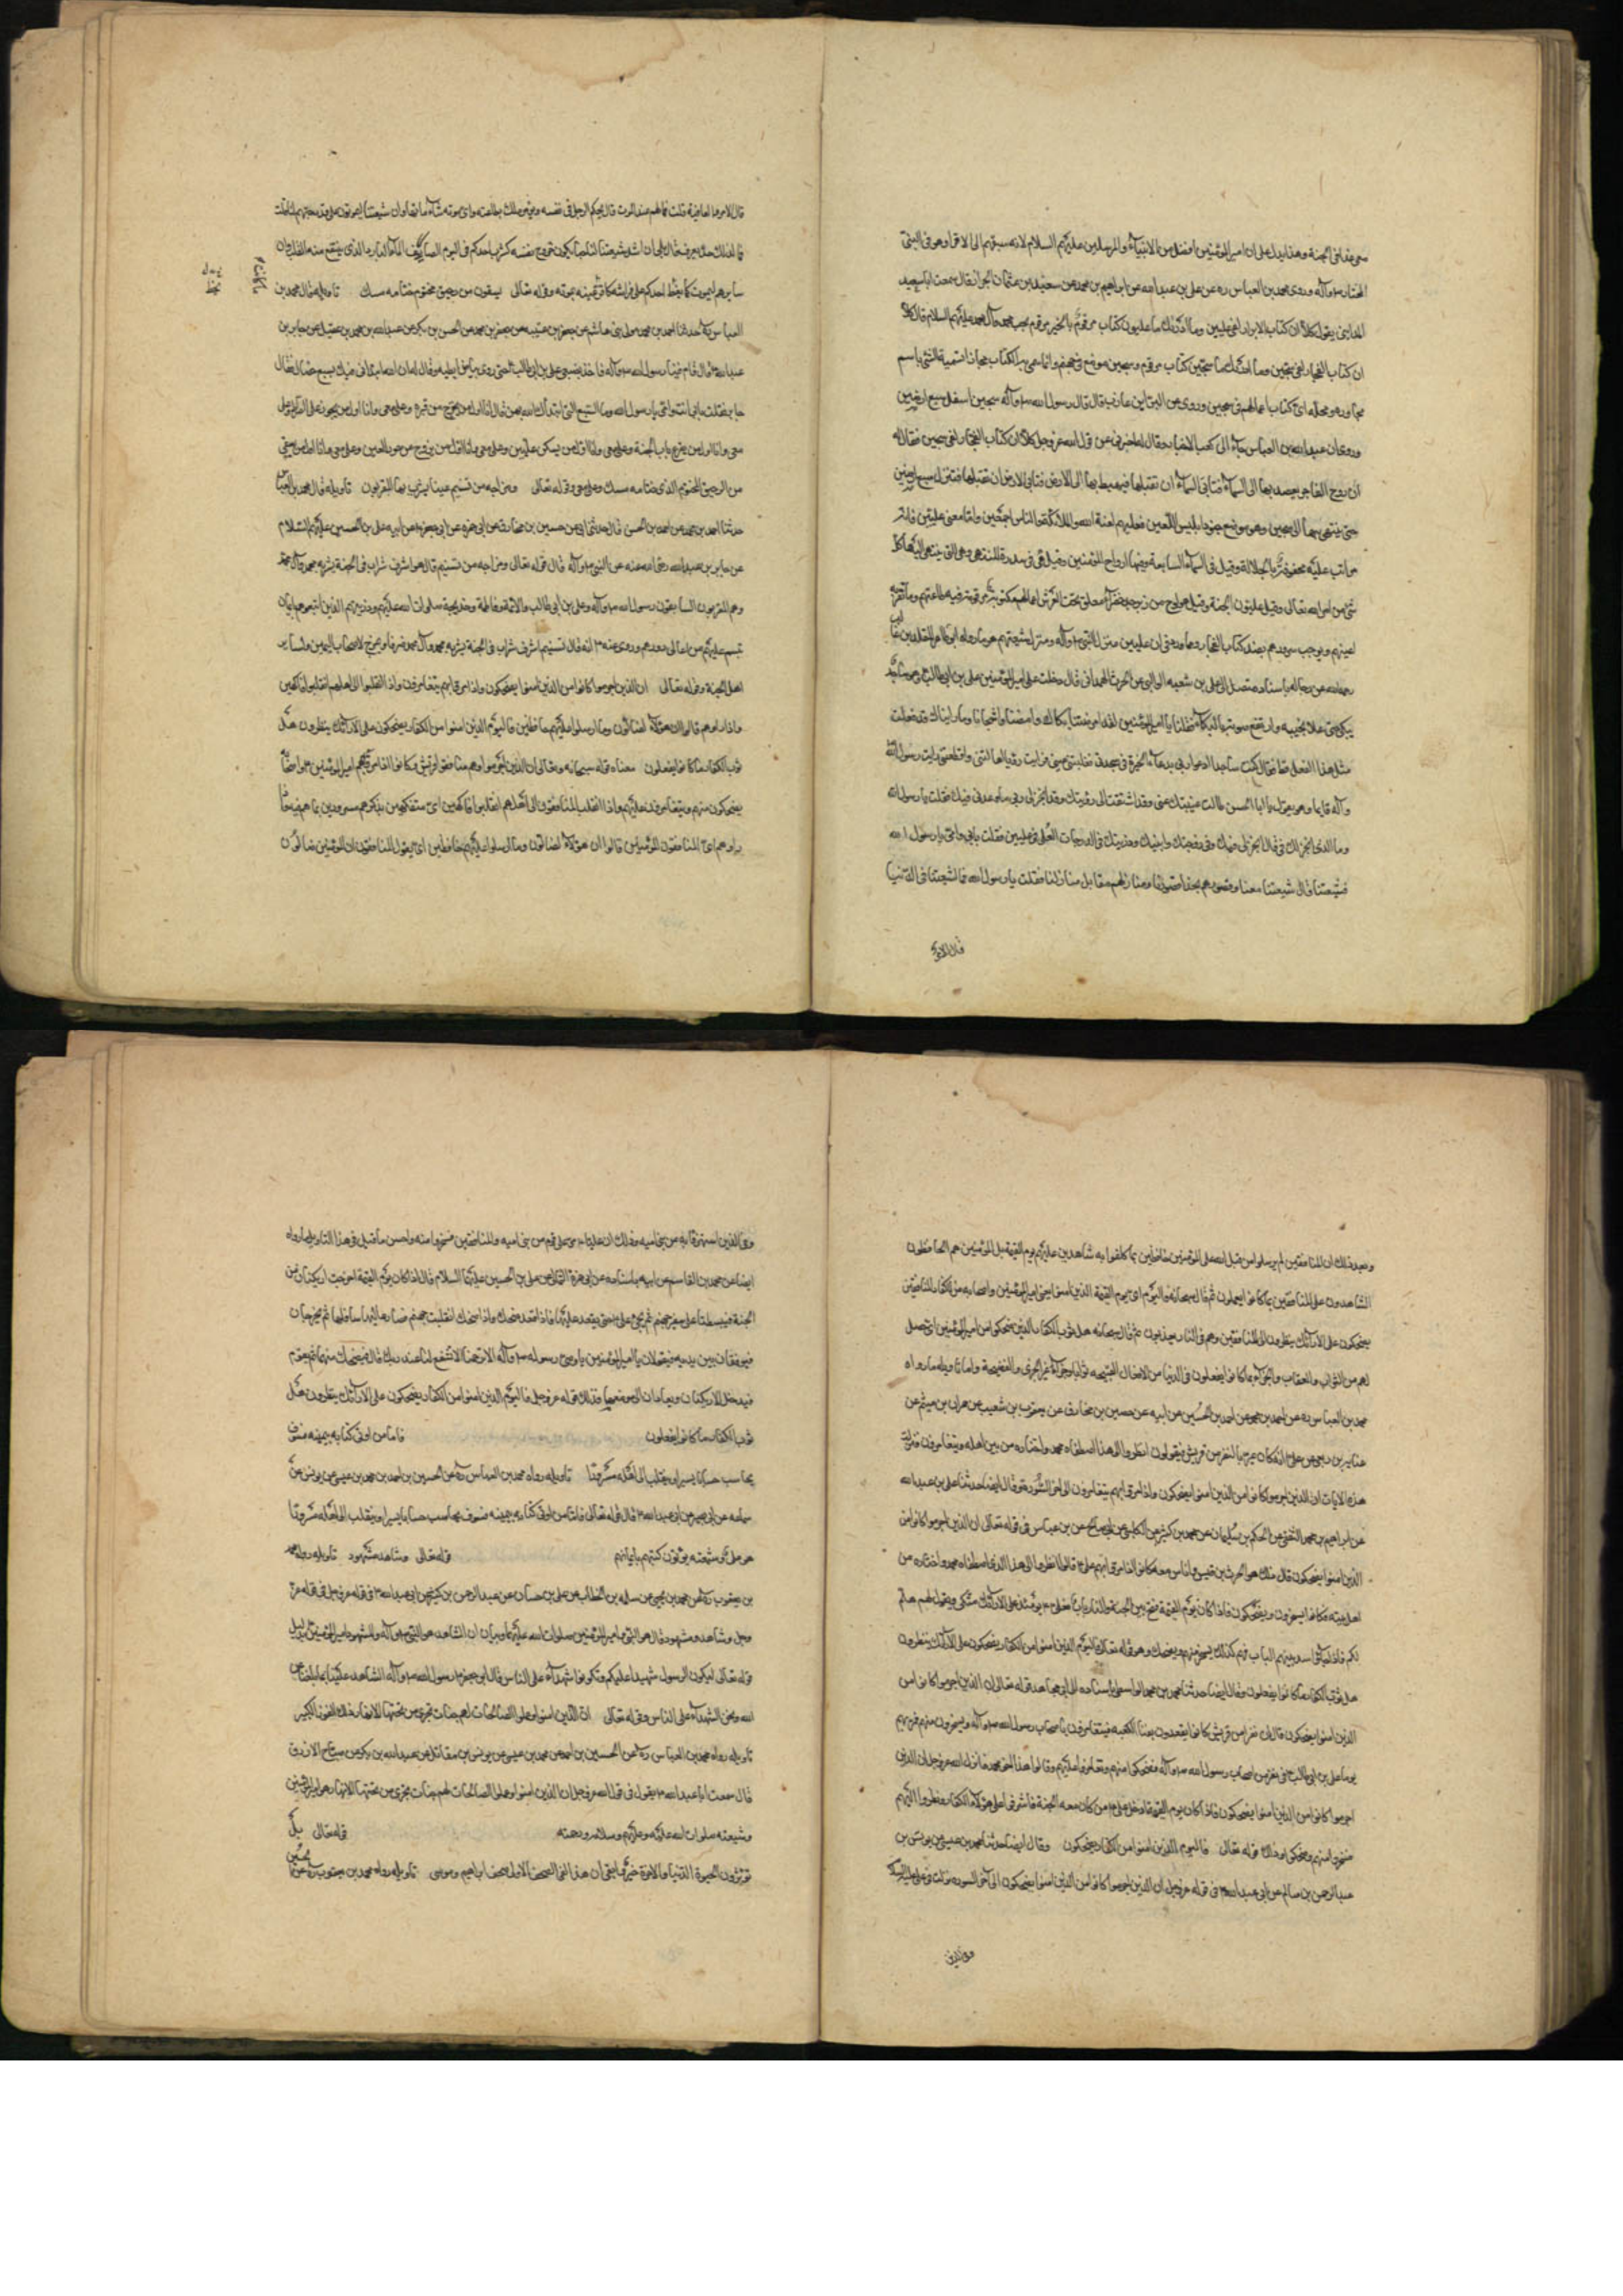 معي فدلني الجنة وهذا يدل على ان امير المؤمنين افضل من الانبياء والمرسلين عليهم السلام لانه سبقهم الى الاقرار وهو في البني
المختار ص وآله وروى محمد بن العباس ره عن علي بن عبد الله عن ابراهيم بن محمد عن سعيد بن عثمان الخزاز قال سمعت ابا سعيد
المدايني يقول كلا ان كتاب الابرار لفي عليين وما ادريك ما عليون كتاب مرقوم بالخير مرقوم بحب محمد وآل محمد عليهم السلام قال كلا
ان كتاب الفجار لفي سجين وما ادريك ما سجين كتاب مرقوم وسجين موضع في جهنم وانما سمى به الكتاب مجازا تسمية الشئ باسم
مجاوره ومحله اي كتاب اعمالهم في سجين وروى عن البراء بن عازب قال قال رسول الله ص وآله سجين اسفل سبع ارضين
وروى ان عبد الله بن العباس جاء الى كعب الاحبار وقال له اخبرني عن قول الله عز وجل كلا ان كتاب الفجار لفي سجين فقال له
ان روح الفاجر يصعد بها الى السماء فتابى السماء ان تقبلها فيهبط بها الى الارض فتابى الارض ان تقبلها فتنزل سبع ارضين
حتى ينتهى بها الى سجين وهو موضع جنود ابليس اللعين فعليهم لعنة الله والملائكة والناس اجمعين واما معنى عليين فانه
مراتب عالية محفوفة بالجلالة وقيل في السماء السابعة وفيها ارواح المؤمنين وقيل هي في سدرة المنتهى وهي التي ينتهي اليها كل
شئ من امر الله تعالى وقيل عليون الجنة وقيل هو لوح من زبرجد خضراء معلق تحت العرش اعمالهم مكتوبة مرقومة فيه طاعتهم وما تقر به
اعينهم ويوجب سرورهم بضد كتاب الفجار ومما ورد في ان عليين منزل النبي ص وآله ومنزل شيعتهم هو ما رواه ابو طاهر المقلد بن غالب
رحمه الله عن رجاله باسناد متصل الى علي بن شعبة الوالبي عن الحرث الهمداني قال دخلت على امير المؤمنين علي بن ابي طالب ع وهو ساجد
يبكي حتى علا نحيبه وارتفع صوته بالبكاء فقلنا يا امير المؤمنين لقد امرضنا بكاؤك وامضنا واشجانا وما رايناك قد فعلت
مثل هذا الفعل قط فقال كنت ساجدا ادعو ربي بدعاء الخيرة في سجدتي فغلبتني عيني فرايت رؤيا هالتني واقلقتني رايت رسول الله
وآله قائما وهو يقول يا ابا الحسن طالت غيبتك عني وقد اشتقت الى رؤيتك وقد انجز لي ربي ما وعدني فيك فقلت يا رسول الله
وما الذي انجز لك في قال انجز لي فيك وفي زوجتك وابنيك وذريتك في الدرجات العلى في عليين فقلت بابي وامي يا رسول الله
فشيعتنا قال شيعتنا معنا وقصورهم بحذاء قصورنا ومنازلهم مقابل منازلنا فقلت يا رسول الله فما لشيعتنا في الدنيا
قال الامن
قال الامن والعافية قلت فما لهم عند الموت قال يحكم الرجل في نفسه ويؤمر ملك بطاعته واي موتة شاء ماتها وان شيعتنا ليموتون على قدر حبهم لنا قلت
فما لذلك حد يعرف قال بلى ان اشد شيعتنا لنا حبا يكون خروج نفسه كشرب احدكم في اليوم الصايف الماء البارد الذي ينتقع منه القلب وان
سايرهم ليموت كما يغط احدكم على فراشه كاقر ما كانت عينه بموته وقوله تعالى يسقون من رحيق مختوم ختامه مسك تاويله قال محمد بن
العباس ره حدثنا احمد بن محمد مولى بني هاشم عن جعفر بن عنبسة عن جعفر بن محمد عن الحسن بن بكر عن عبد الله بن محمد بن عقيل عن جابر بن
عبد الله قال قام فينا رسول الله ص وآله فاخذ بضبعي علي بن ابي طالب حتى رؤى بياض ابطيه وقال له ان الله ابتداني فيك بسبع خصال قال
جابر فقلت بابي انت وامي يا رسول الله وما السبع التي ابتداك الله بهن قال انا اول من يخرج من قبره وعلي معي وانا اول من يجوز على الصراط وعلي
معي وانا اول من يقرع باب الجنة وعلي معي وانا اول من يسكن عليين وعلي معي وانا اول من يزوج من حور العين وعلي معي وانا اول من يسقى
من الرحيق المختوم الذي ختامه مسك وعلي معي وقوله تعالى ومزاجه من تسنيم عينا يشرب بها المقربون تاويله قال محمد بن العباس
حدثنا احمد بن محمد عن احمد بن الحسن قال حدثنا ابي عن حسين بن مخارق عن ابي حمزة عن ابي جعفر عن ابيه علي بن الحسين عليهم السلام
عن جابر بن عبد الله رضي الله عنه عن النبي ص وآله قال قوله تعالى ومزاجه من تسنيم قال هو اشرف شراب في الجنة يشربه محمد وآل محمد
وهم المقربون السابقون رسول الله ص وآله وعلي بن ابي طالب والائمة وفاطمة وخديجة صلوات الله عليهم وذريتهم الذين اتبعوهم بايمان
تسنم عليهم من اعالى دورهم وروى عنه ع انه قال تسنيم اشرف شراب في الجنة يشربه محمد وآل محمد صرفا ويمزج لاصحاب اليمين ولساير
اهل الجنة وقوله تعالى ان الذين اجرموا كانوا من الذين امنوا يضحكون واذا مروا بهم يتغامزون واذا انقلبوا الى اهلهم انقلبوا فاكهين
واذا راوهم قالوا ان هؤلاء لضالون وما ارسلوا عليهم حافظين فاليوم الذين امنوا من الكفار يضحكون على الارائك ينظرون هل
ثوب الكفار ما كانوا يفعلون معناه قوله سبحانه وتعالى ان الذين اجرموا وهم منافقوا قريش كانوا اذا مر بهم امير المؤمنين ع واصحابه
يضحكون منهم ويتغامزون عليهم واذا انقلب المنافقون الى اهلهم انقلبوا فاكهين اي متفكهين بذكرهم مسرورين بما هم فيه واذا
راوهم اي المنافقون المؤمنين قالوا ان هؤلاء لضالون وما ارسلوا عليهم حافظين اي يقول المنافقون ان المؤمنين ضالون
وبعد ذلك ان المنافقين لم يرسلوا من قبل الله على المؤمنين حافظين بما كلفوا به شاهدين عليهم يوم القيمة بل المؤمنين هم الحافظون
الشاهدون على المنافقين بما كانوا يعملون ثم قال سبحانه فاليوم اي يوم القيمة الذين امنوا يعني امير المؤمنين واصحابه من الكفار المنافقين
يضحكون على الارائك ينظرون الى المنافقين وهم في النار يعذبون ثم قال سبحانه هل ثوب الكفار الذين ضحكوا من امير المؤمنين اي حصل
لهم من الثواب والعقاب والجزاء بما كانوا يفعلون في الدنيا من الافعال القبيحة ثوابا وجزاء غير الخزى والفضيحة واما تاويله ما رواه
محمد بن العباس ره عن احمد بن محمد عن احمد بن الحسين عن ابيه عن حسين بن مخارق عن يعقوب بن شعيب عن عمران بن ميثم عن
عباية بن ربعي عن علي ع انه كان يمر بالنفر من قريش فيقولون انظروا الى هذا اصطفاه محمد واختاره من بين اهله ويتغامزون فنزلت
هذه الايات ان الذين اجرموا كانوا من الذين امنوا يضحكون واذا مروا بهم يتغامزون الى اخر السورة وقال ايضا حدثنا علي بن عبد الله
عن ابراهيم بن محمد الثقفي عن الحكم بن سليمان عن محمد بن كثير عن الكلبي عن ابي صالح عن بن عباس في قوله تعالى ان الذين اجرموا كانوا من
الذين امنوا يضحكون قال ذلك هو الحرث بن قيس واناس معه كانوا اذا مر بهم علي ع قالوا انظروا الى هذا الذي اصطفاه محمد واختاره من
اهل بيته فكانوا يسخرون ويضحكون فاذا كان يوم القيمة فتح بين الجنة والنار باب فعلي ع يومئذ على الارائك متكئ ويقول لهم هلم
لكم فاذا جاؤا سد بينهم الباب فهو كذلك يسخر منهم ويضحك وهو قوله تعالى فاليوم الذين امنوا من الكفار يضحكون على الارائك ينظرون
هل ثوب الكفار ما كانوا يفعلون وقال ايضا حدثنا محمد بن محمد الواسطي باسناده الى مجاهد قوله تعالى ان الذين اجرموا كانوا من
الذين امنوا يضحكون قال ان نفرا من قريش كانوا يقعدون بفناء الكعبة فيتغامزون باصحاب رسول الله ص وآله ويسخرون منهم فمر بهم
يوما علي بن ابي طالب ع في نفر من اصحاب رسول الله ص وآله فضحكوا منهم وتغامزوا عليهم وقالوا هذا اخو محمد فانزل الله عز وجل ان الذين
اجرموا كانوا من الذين امنوا يضحكون فاذا كان يوم القيمة ادخل علي ع من كان معه الجنة فاشرفوا على هؤلاء الكفار ونظروا اليهم
فسخروا منهم وضحكوا وذلك قوله تعالى فاليوم الذين امنوا من الكفار يضحكون وقال ايضا حدثنا محمد بن عيسى عن يونس بن
عبد الرحمن بن سالم عن ابي عبد الله ع في قوله عز وجل ان الذين اجرموا كانوا من الذين امنوا يضحكون الى اخر السورة نزلت في علي عليه السلام
وفي الذين
وفي الذين استهزؤا به من بني امية وذلك ان عليا ع مر على قوم من بني امية والمنافقين فسخروا منه واحسن ما قيل في هذا التاويل ما رواه
ايضا عن محمد بن القاسم عن ابيه باسناده عن ابي حمزة الثمالي عن علي بن الحسين عليهما السلام قال اذا كان يوم القيمة اخرجت اريكتان من
الجنة فبسطتا على شفير جهنم ثم يجئ علي ع حتى يقعد عليهما فاذا قعد ضحك واذا ضحك انقلبت جهنم فصار عاليها سافلها ثم يخرجان
فيوقفان بين يديه فيقولان يا امير المؤمنين يا وصي رسول الله ص وآله الا ترحمنا الا تشفع لنا عند ربك قال فيضحك منهما ثم يقوم
فيدخل الاريكتان ويعادان الى موضعهما فذلك قوله عز وجل فاليوم الذين امنوا من الكفار يضحكون على الارائك ينظرون هل
ثوب الكفار ما كانوا يفعلون فاما من اوتى كتابه بيمينه فسوف
يحاسب حسابا يسيرا وينقلب الى اهله مسرورا تاويله رواه محمد بن العباس ره عن الحسين بن احمد بن محمد بن عيسى عن يونس عن
سماعة عن ابي بصير عن ابي عبد الله ع قال قوله تعالى فاما من اوتى كتابه بيمينه فسوف يحاسب حسابا يسيرا وينقلب الى اهله مسرورا
هو علي وشيعته يؤتون كتبهم بايمانهم قوله تعالى وشاهد ومشهود تاويله رواه محمد
بن يعقوب ره عن محمد بن يحيى عن سلمة بن الخطاب عن علي بن حسان عن عبد الرحمن بن كثير عن ابي عبد الله ع في قوله عز وجل في قوله عز
وجل وشاهد ومشهود قال هو النبي وامير المؤمنين صلوات الله عليهما وبيان ان الشاهد هو النبي ص وآله والمشهود امير المؤمنين ع بدليل
قوله تعالى ليكون الرسول شهيدا عليكم وتكونوا شهداء على الناس قال ابو جعفر ع رسول الله ص وآله الشاهد علينا بما بلغنا عن
الله ونحن الشهداء على الناس وقوله تعالى ان الذين امنوا وعملوا الصالحات لهم جنات تجري من تحتها الانهار ذلك الفوز الكبير
تاويله رواه محمد بن العباس ره عن الحسين بن احمد عن محمد بن عيسى عن يونس بن مقاتل عن عبد الله بن بكير عن صباح الازرق
قال سمعت ابا عبد الله ع يقول في قول الله عز وجل ان الذين امنوا وعملوا الصالحات لهم جنات تجري من تحتها الانهار هو امير المؤمنين
وشيعته صلوات الله عليه وعليهم وسلامه ورحمته قوله تعالى بل
تؤثرون الحيوة الدنيا والاخرة خير وابقى ان هذا لفي الصحف الاولى صحف ابراهيم وموسى تاويله رواه محمد بن يعقوب ره عن